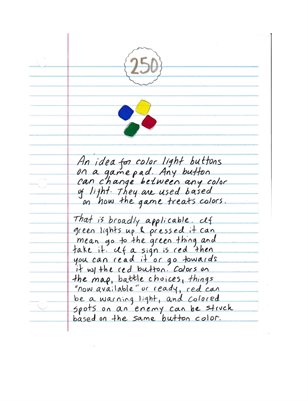 250
An idea for color light buttons
on a gamepad. Any button
can change between any color
of light. They are used based
on how the game treats colors.
That is broadly applicable. If
green lights up & pressed it can
mean go to the green thing and
take it. If a sign is red then
you can read it or go towards
it w/ the red button. Colors on
the map, battle choices, things
"now available" or ready, red can
be a warning light, and colored
spots on an enemy can be struck
based on the same button color.